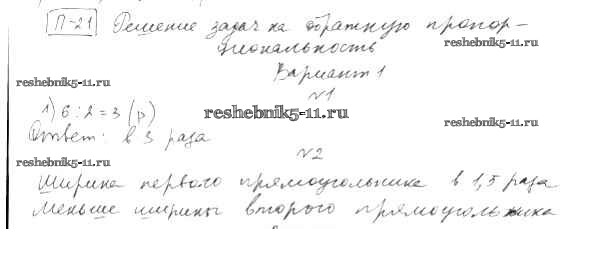 П-21 Решение задач на обратную пропор-
циональность
Вариант 1
reshebnik5-11.ru
№1
1) 6 : 2 = 3 (р)
reshebnik5-11.ru
reshebnik5-11.ru
Ответ: в 3 раза
№2
reshebnik5-11.ru
Ширина первого прямоугольника в 1,5 раза
меньше ширины второго прямоугольника